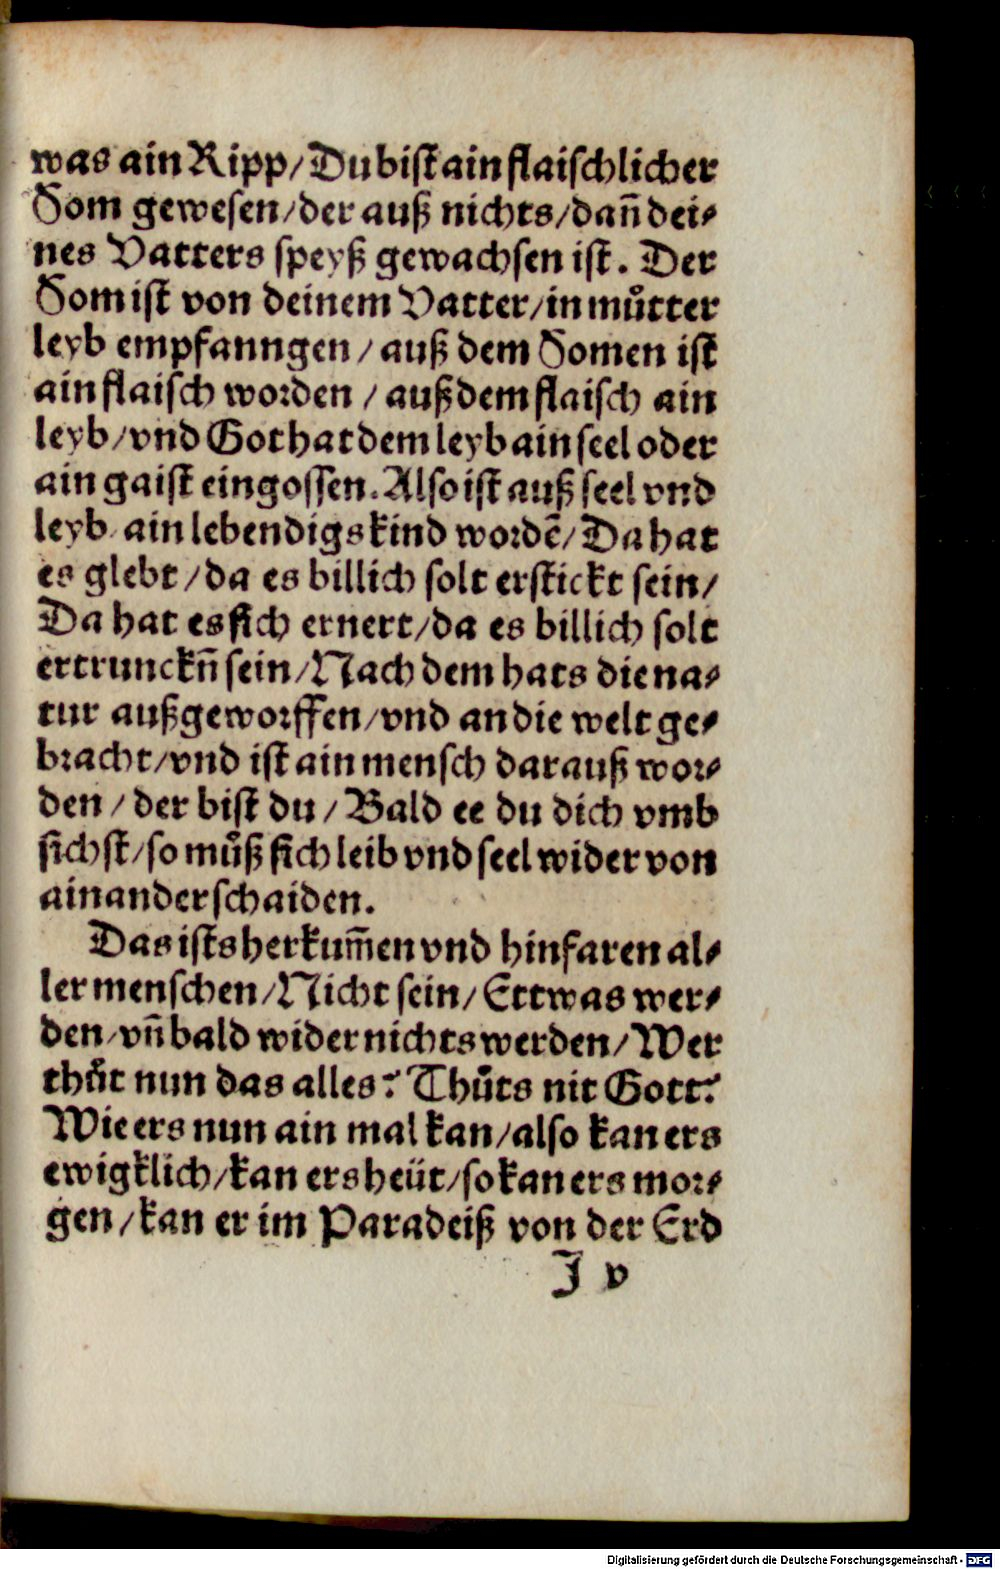 was ain Ripp/ Du bist ain flaischlicher
Som gewesen/ der auß nichts/ dañ dei⸗
nes Vatters speyß gewachsen ist. Der
Som ist von deinem Vatter/ in můtter
leyb empfanngen/ auß dem Somen ist
ain flaisch worden/ auß dem flaisch ain
leyb/ vnd Got hat dem leyb ain seel oder
ain gaist eingossen. Also ist auß seel vnd
leyb/ ain lebendigs kind wordẽ/ Da hat
es glebt/ da es billich solt erstickt sein/
Da hat es sich ernert/ da es billich solt
ertrunckñ sein/ Nach dem hats die na⸗
tur außgeworffen/ vnd an die welt ge⸗
bracht/ vnd ist ain mensch darauß wor⸗
den/ der bist du/ Bald ee du dich vmb
sichst/ so můß sich leib vnd seel wider von
ainander schaiden.
Das ists herkum̃en vnd hinfaren al⸗
ler menschen/ Nicht sein/ Ettwas wer⸗
den/ vñ bald wider nichts werden/ Wer
thůt nun das alles? Thůts nit Gott?
Wie ers nun ain mal kan/ also kan ers
ewigklich/ kan ers heüt/ so kan ers mor⸗
gen/ kan er im Paradeiß von der Erd
J v
Digitalisierung gefördert durch die Deutsche Forschungsgemeinschaft - DFG